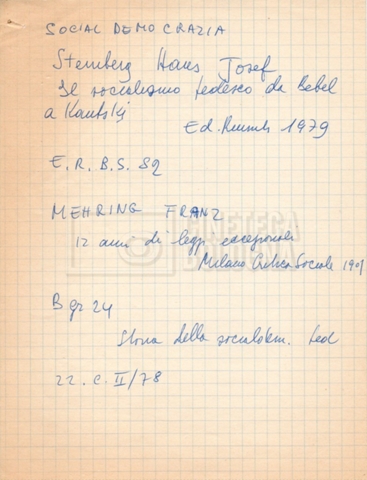 SOCIAL DEMOCRAZIA
Steinberg Hans Josef
Il socialismo tedesco da Bebel
a Kautskij
Ed. Riuniti 1979
E.R.B.S. 82
MEHRING FRANZ
12 anni di leggi eccezionali
Milano Critica Sociale 1901
B gr 24
Storia della socialdem. ted
22. C. II/78
CINETECA